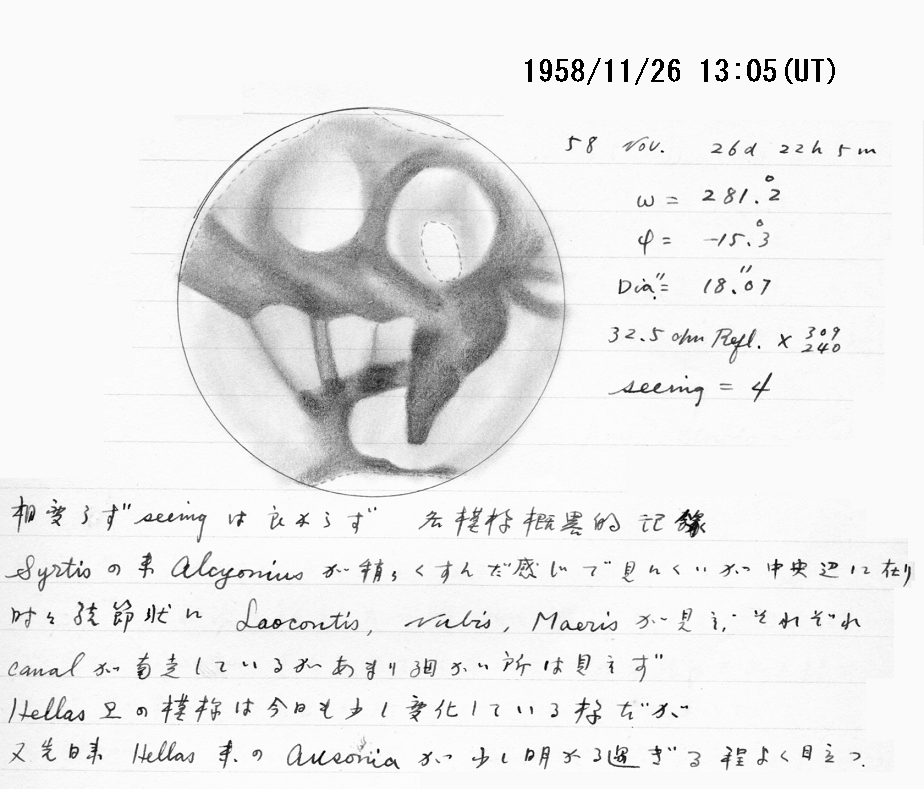 1958/11/26 13:05(UT)
58 Nov. 26d 22h 5m
ω = 281.°2
φ = -15.°3
Dia. = 18."07
32.5 cm Refl. × 309
240
seeing = 4
相変らず seeing は良からず 各模様概畧的記録
Syrtis の東 Alcyonius が稍々くすんだ感じで見にくいが中央辺に在り
時々 節状に Laocontis, Nubis, Maeris が見え、それぞれ
canal が南走しているがあまり細かい所は見えず
Hellas 上の模様は今日も少し変化している様だが
又先日来 Hellas 東の Ausonia が少し明かる過ぎる程よく目立つ.